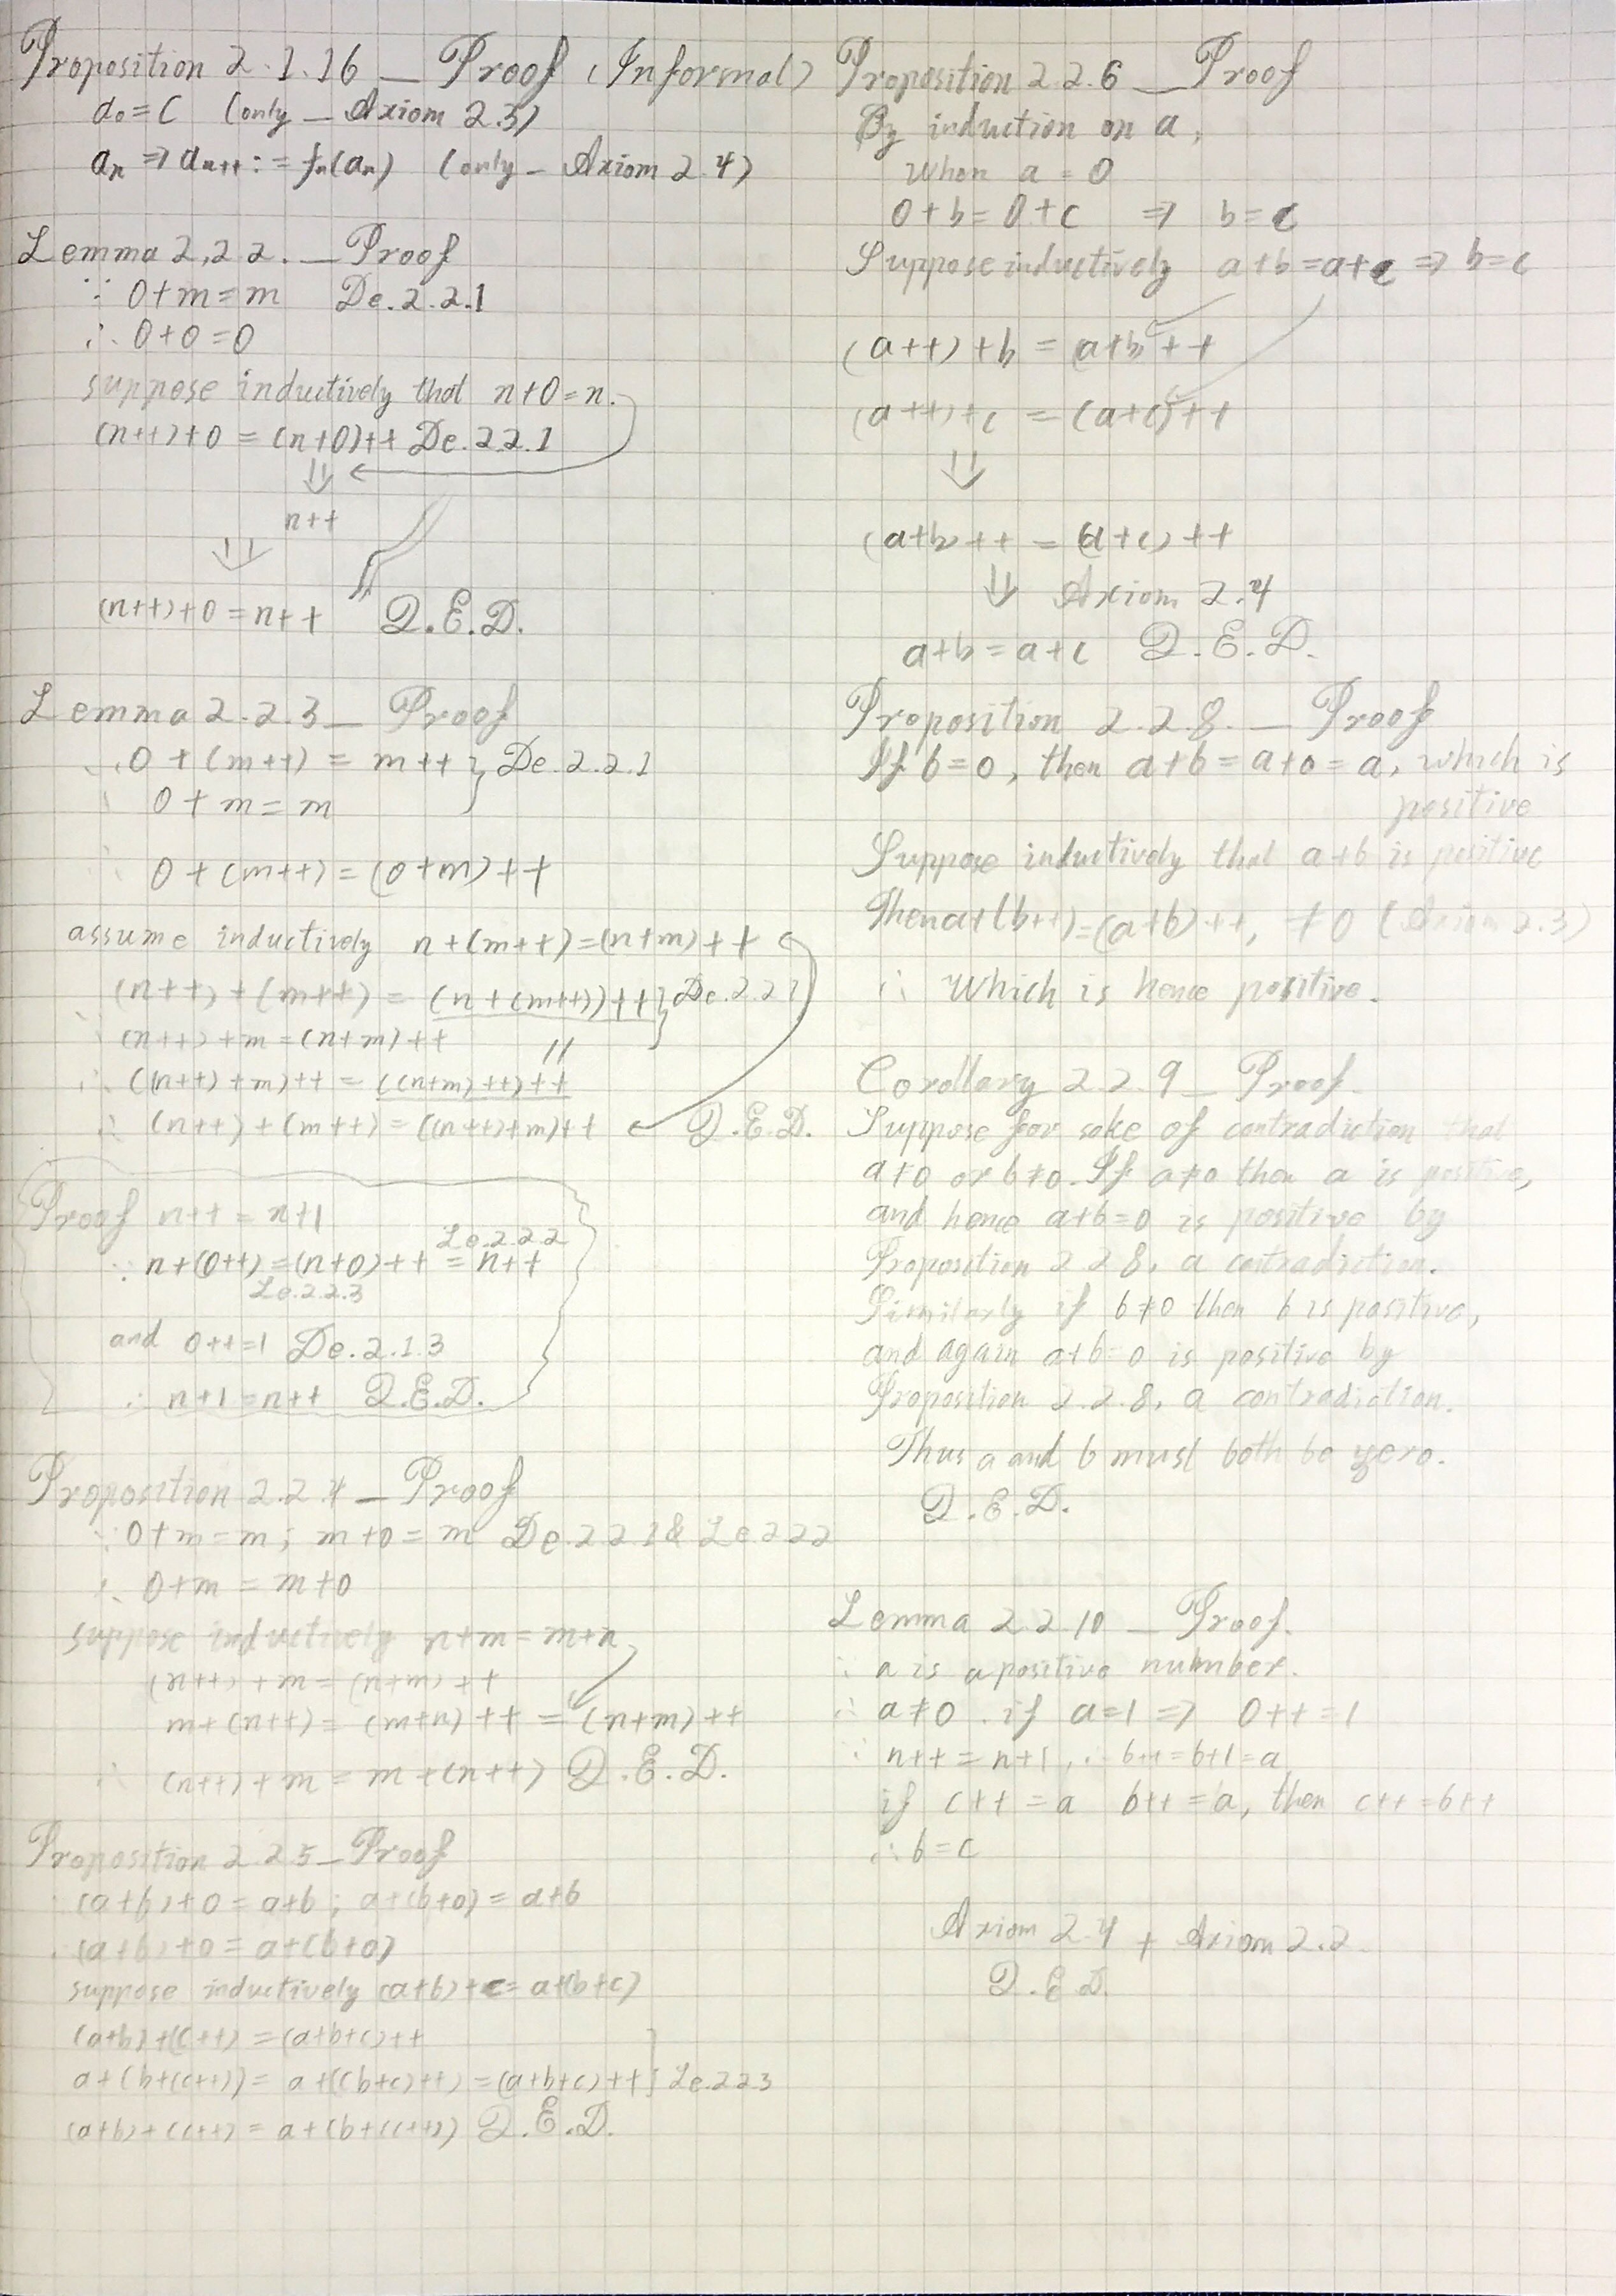 Proposition 2.1.16 — Proof (Informal)
a₀ = C (only — Axiom 2.3)
aₙ ⇒ aₙ₊₊ := fₙ(aₙ) (only — Axiom 2.4)
Lemma 2.2.2. — Proof
∵ 0+m=m De.2.2.1
∴ 0+0=0
suppose inductively that n+0=n.
(n++)+0 = (n+0)++ De.2.2.1
⇓
n++
⇓
(n++)+0 = n++ Q.E.D.
Lemma 2.2.3 — Proof
∵ 0+(m++) = m++ } De.2.2.1
0+m=m
∴ 0+(m++) = (0+m)++
assume inductively n+(m++)=(n+m)++
∵ (n++)+(m++) = (n+(m++))++ } De.2.2.1
(n++)+m=(n+m)++ //
∴ ((n++)+m)++ = ((n+m)++)++
∴ (n++)+(m++) = ((n++)+m)++ Q.E.D.
Proof n++ = n+1
Le.2.2.2
∵ n+(0++)=(n+0)++ = n++
Le.2.2.3
and 0++=1 De.2.1.3
∴ n+1=n++ Q.E.D.
Proposition 2.2.4 — Proof
∵ 0+m=m; m+0=m De.2.2.1 & Le.2.2.2
∴ 0+m = m+0
suppose inductively n+m=m+n
(n++)+m=(n+m)++
m+(n++) = (m+n)++ = (n+m)++
∴ (n++)+m = m+(n++) Q.E.D.
Proposition 2.2.5 — Proof
∵ (a+b)+0 = a+b; a+(b+0) = a+b
∴ (a+b)+0 = a+(b+0)
suppose inductively (a+b)+c= a+(b+c)
(a+b)+(c++) = (a+b+c)++
a+(b+(c++)) = a+((b+c)++) = (a+b+c)++ ] Le.2.2.3
(a+b)+(c++) = a+(b+(c++)) Q.E.D.
Proposition 2.2.6 — Proof
By induction on a,
When a = 0
0+b = 0+c ⇒ b=c
Suppose inductively a+b=a+c ⇒ b=c
(a++)+b = (a+b)++
(a++)+c = (a+c)++
⇓
(a+b)++ = (a+c)++
⇓ Axiom 2.4
a+b = a+c Q.E.D.
Proposition 2.2.8. — Proof
If b=0, then a+b=a+0=a, which is
positive
Suppose inductively that a+b is positive
Then a+(b++)=(a+b)++, ≠0 (Axiom 2.3)
∴ Which is hence positive.
Corollary 2.2.9 — Proof.
Suppose for sake of contradiction that
a≠0 or b≠0. If a≠0 then a is positive,
and hence a+b=0 is positive by
Proposition 2.2.8, a contradiction.
Similarly if b≠0 then b is positive,
and again a+b=0 is positive by
Proposition 2.2.8, a contradiction.
Thus a and b must both be zero.
Q.E.D.
Lemma 2.2.10 — Proof.
∵ a is a positive number.
∴ a≠0. if a=1 ⇒ 0++=1
∵ n++=n+1, ∴ b++=b+1=a
if c++=a b++=a, then c++=b++
∴ b=c
Axiom 2.4 + Axiom 2.2
Q.E.D.